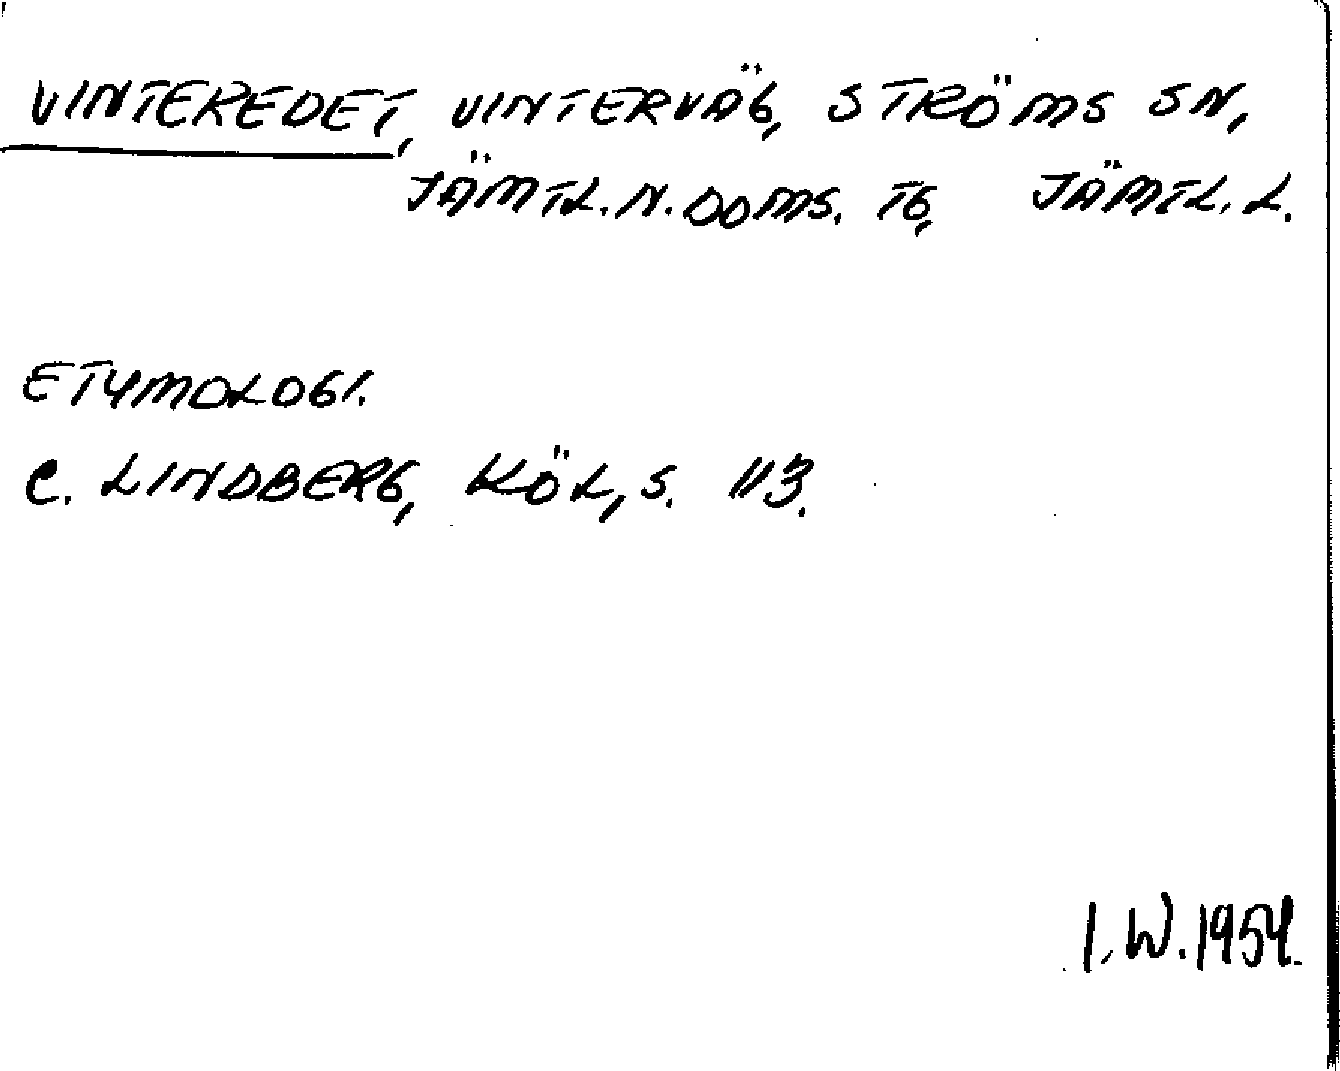 VINTEREDET, VINTERVÄG, STRÖMS SN,
JÄMTL. N. DOMS. TG, JÄMTL. L.
ETYMOLOGI.
C. LINDBERG, KÖL, S. 113.
I.W. 1954.